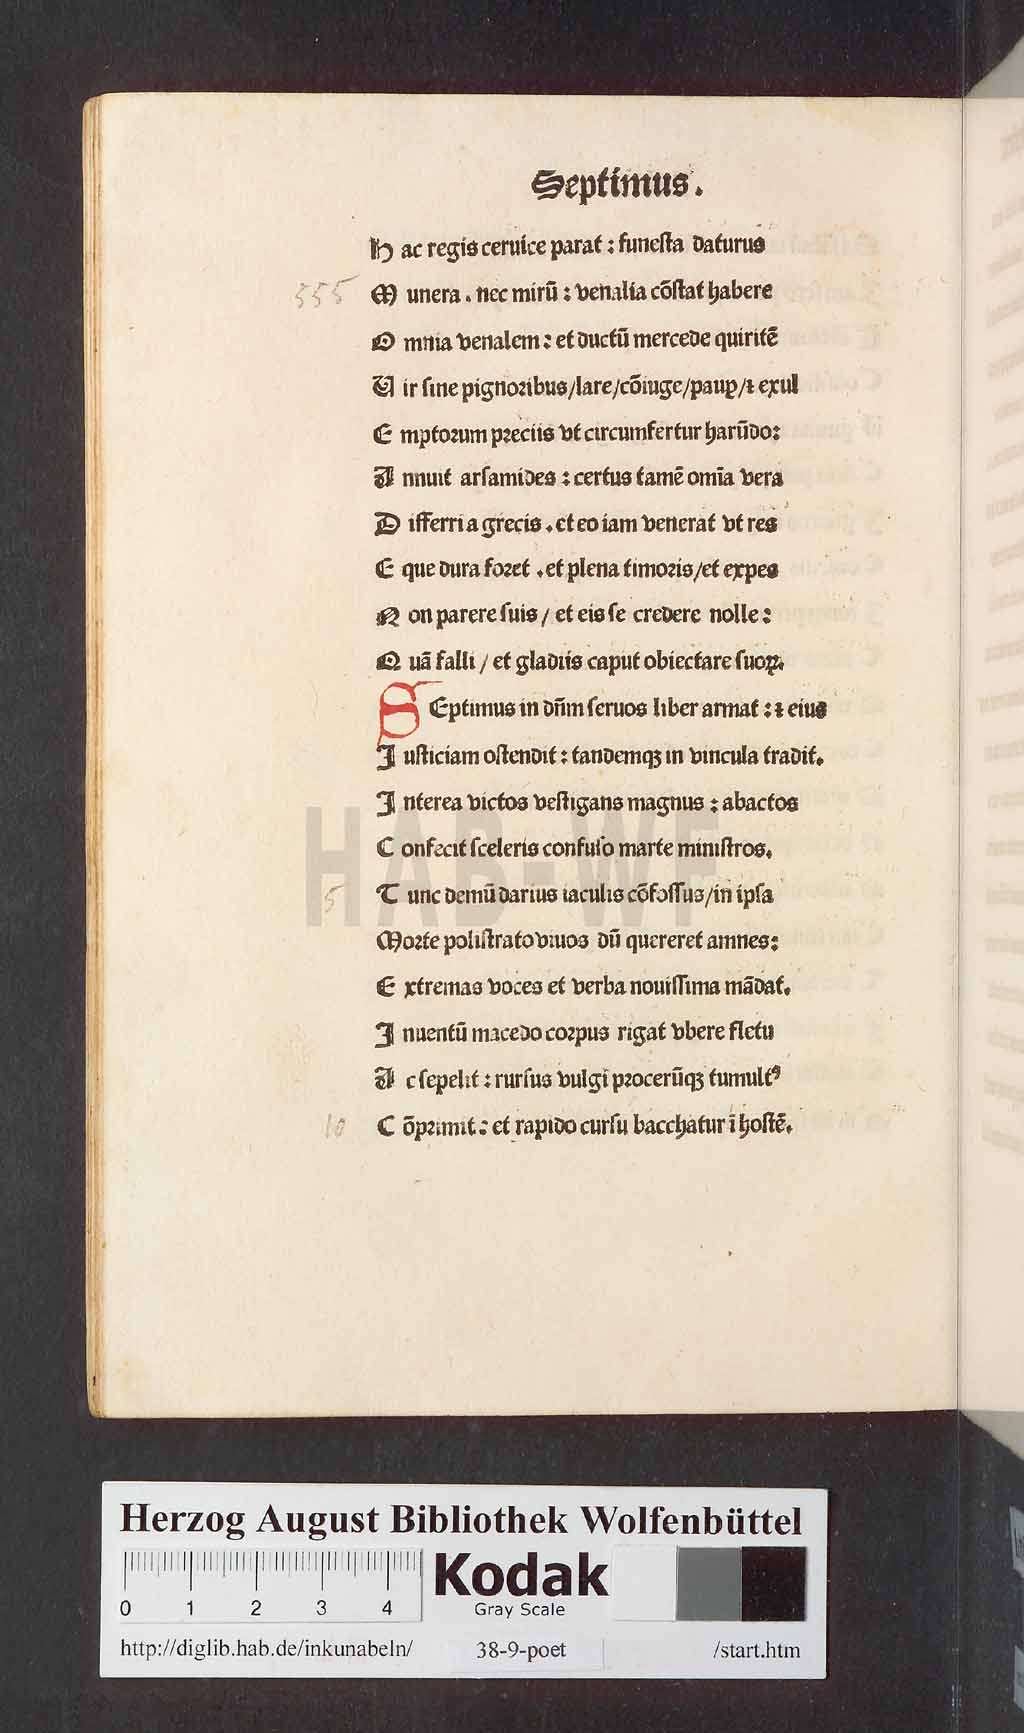 Septimus.
Hac regis ceruice parat : funesta daturus
555 Munera . nec mirū : venalia cōstat habere
Omnia venalem : et ductū mercede quiritē
Uir sine pignoribus/lare/cōiuge/paup̲/⁊ exul
Emptorum preciis vt circumfertur harūdo:
Annuit arsamides : certus tamē om̄ia vera
Differri a grecis . et eo iam venerat vt res
Eque dura foret . et plena timoris/et expes
Non parere suis / et eis se credere nolle:
Quā falli / et gladiis caput obiectare suoꝝ.
SEptimus in dn̄m seruos liber armat : ⁊ eius
Iusticiam ostendit : tandemqꝫ in vincula tradit.
Interea victos vestigans magnus : abactos
Confecit sceleris confuso marte ministros.
5 Tunc demū darius iaculis cōfossus/in ipsa
Morte polistrato viuos dū quereret amnes:
Extremas voces et verba nouissima mādat.
Inuentū macedo corpus rigat vbere fletu
Ac sepelit : rursus vulgi procerūqꝫ tumultꝰ
10 Cōprimit : et rapido cursu bacchatur ī hostē.
HAB-WF
Herzog August Bibliothek Wolfenbüttel
0 1 2 3 4
Kodak
Gray Scale
http://diglib.hab.de/inkunabeln/ 38-9-poet /start.htm